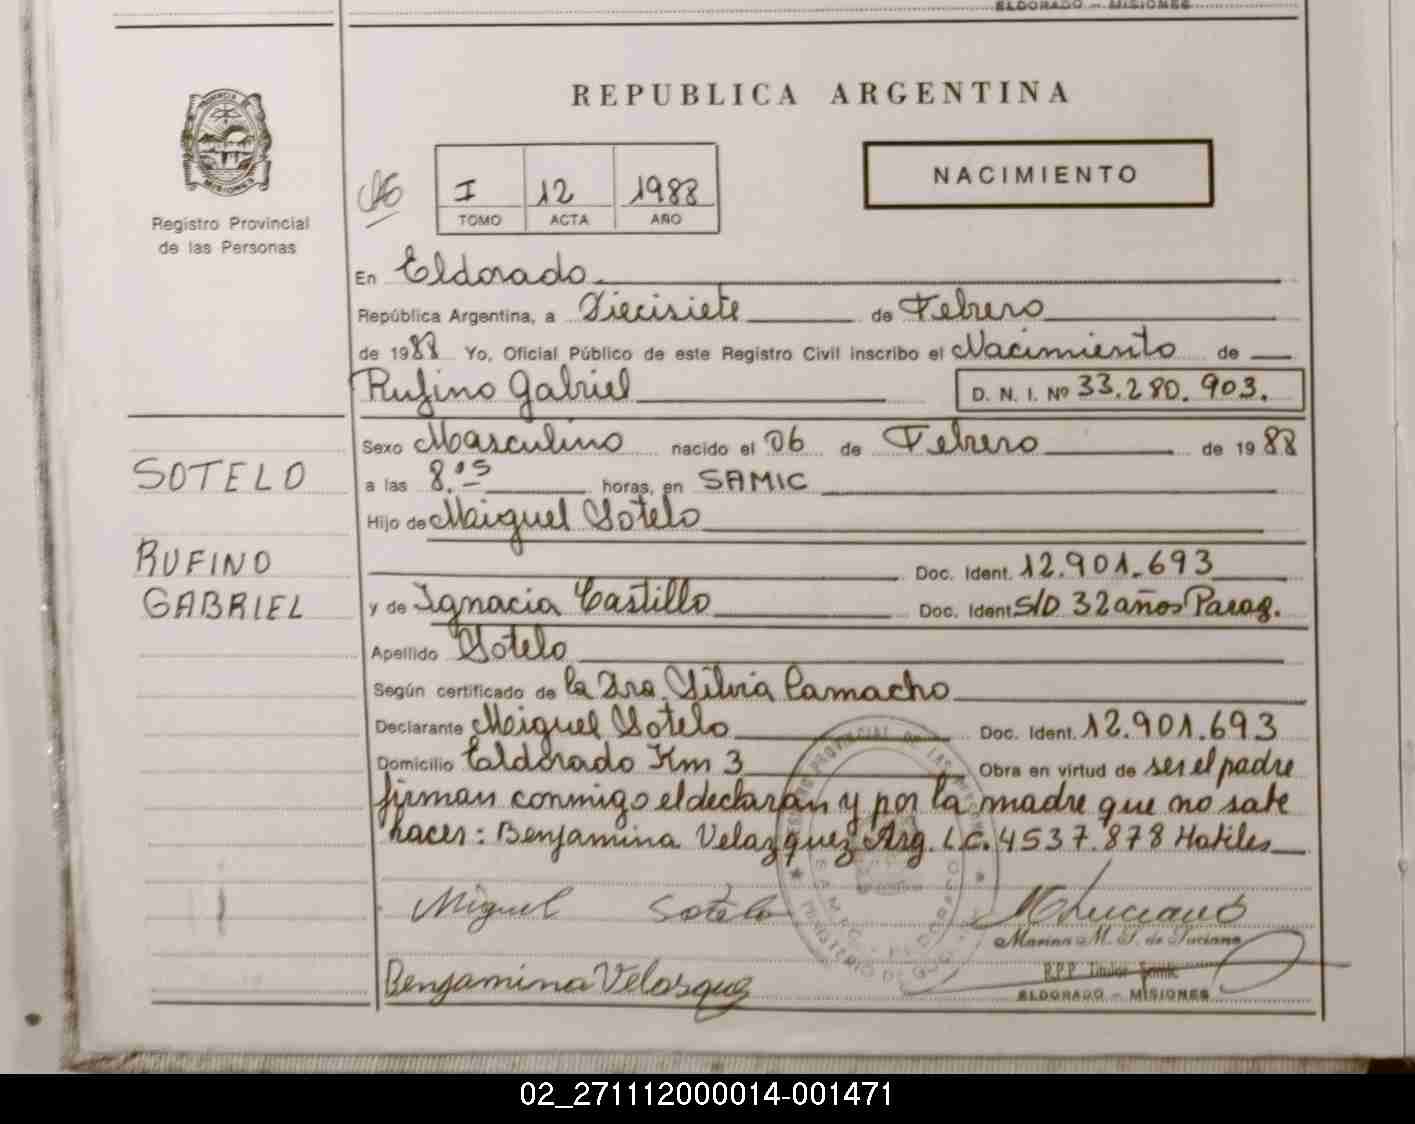 ELDORADO - MISIONES
REPUBLICA ARGENTINA
NACIMIENTO
I 12 1988
TOMO ACTA AÑO
PROVINCIA DE MISIONES
Registro Provincial
de las Personas
En Eldorado
República Argentina, a Diecisiete de Febrero
de 1988 Yo, Oficial Público de este Registro Civil inscribo el Nacimiento de
Rufino Gabriel D. N. I. Nº 33.280.903.
Sexo Masculino nacido el 06 de Febrero de 1988
SOTELO
a las 8.05 horas, en SAMIC
Hijo de Miguel Sotelo
RUFINO
Doc. Ident. 12.901.693
GABRIEL
y de Ignacia Castillo Doc. Ident. S/D 32 años Parag.
Apellido Sotelo
Según certificado de la Dra. Silvia Camacho
Declarante Miguel Sotelo Doc. Ident. 12.901.693
Domicilio Eldorado Km 3 Obra en virtud de ser el padre
firman conmigo el declaran y por la madre que no sabe
hacer: Benjamina Velazquez Arg. L.C. 4537.878 Habiles
Miguel Sotelo MLuciano
Marina M. de Luciano
Benjamina Velasquez
ELDORADO - MISIONES
02_271112000014-001471